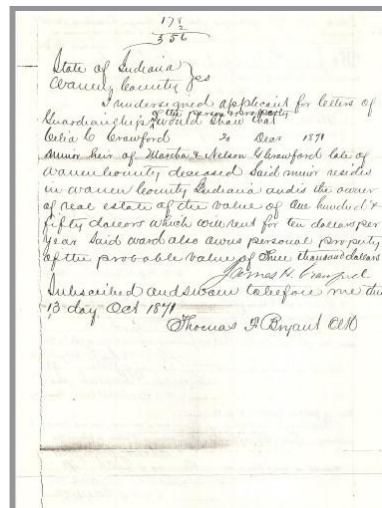 178
2
356
State of Indiana
Warren County } ss
I undersigned applicant for letters of
of the person & property
Guardianship would show that
Celia C Crawford 20 Dear 1871
minor heir of Martha & Nelson G Crawford late of
Warren County deceased Said minor resides
in Warren County Indiana and is the owner
of real estate of the value of One hundred &
fifty dollars which will rent for ten dollars per
year Said ward also owns personal property
of the probable value of Three thousand dollars
James H Crawford
Subscribed and sworn to before me this
13 day Oct 1871
Thomas F Bryant Clk